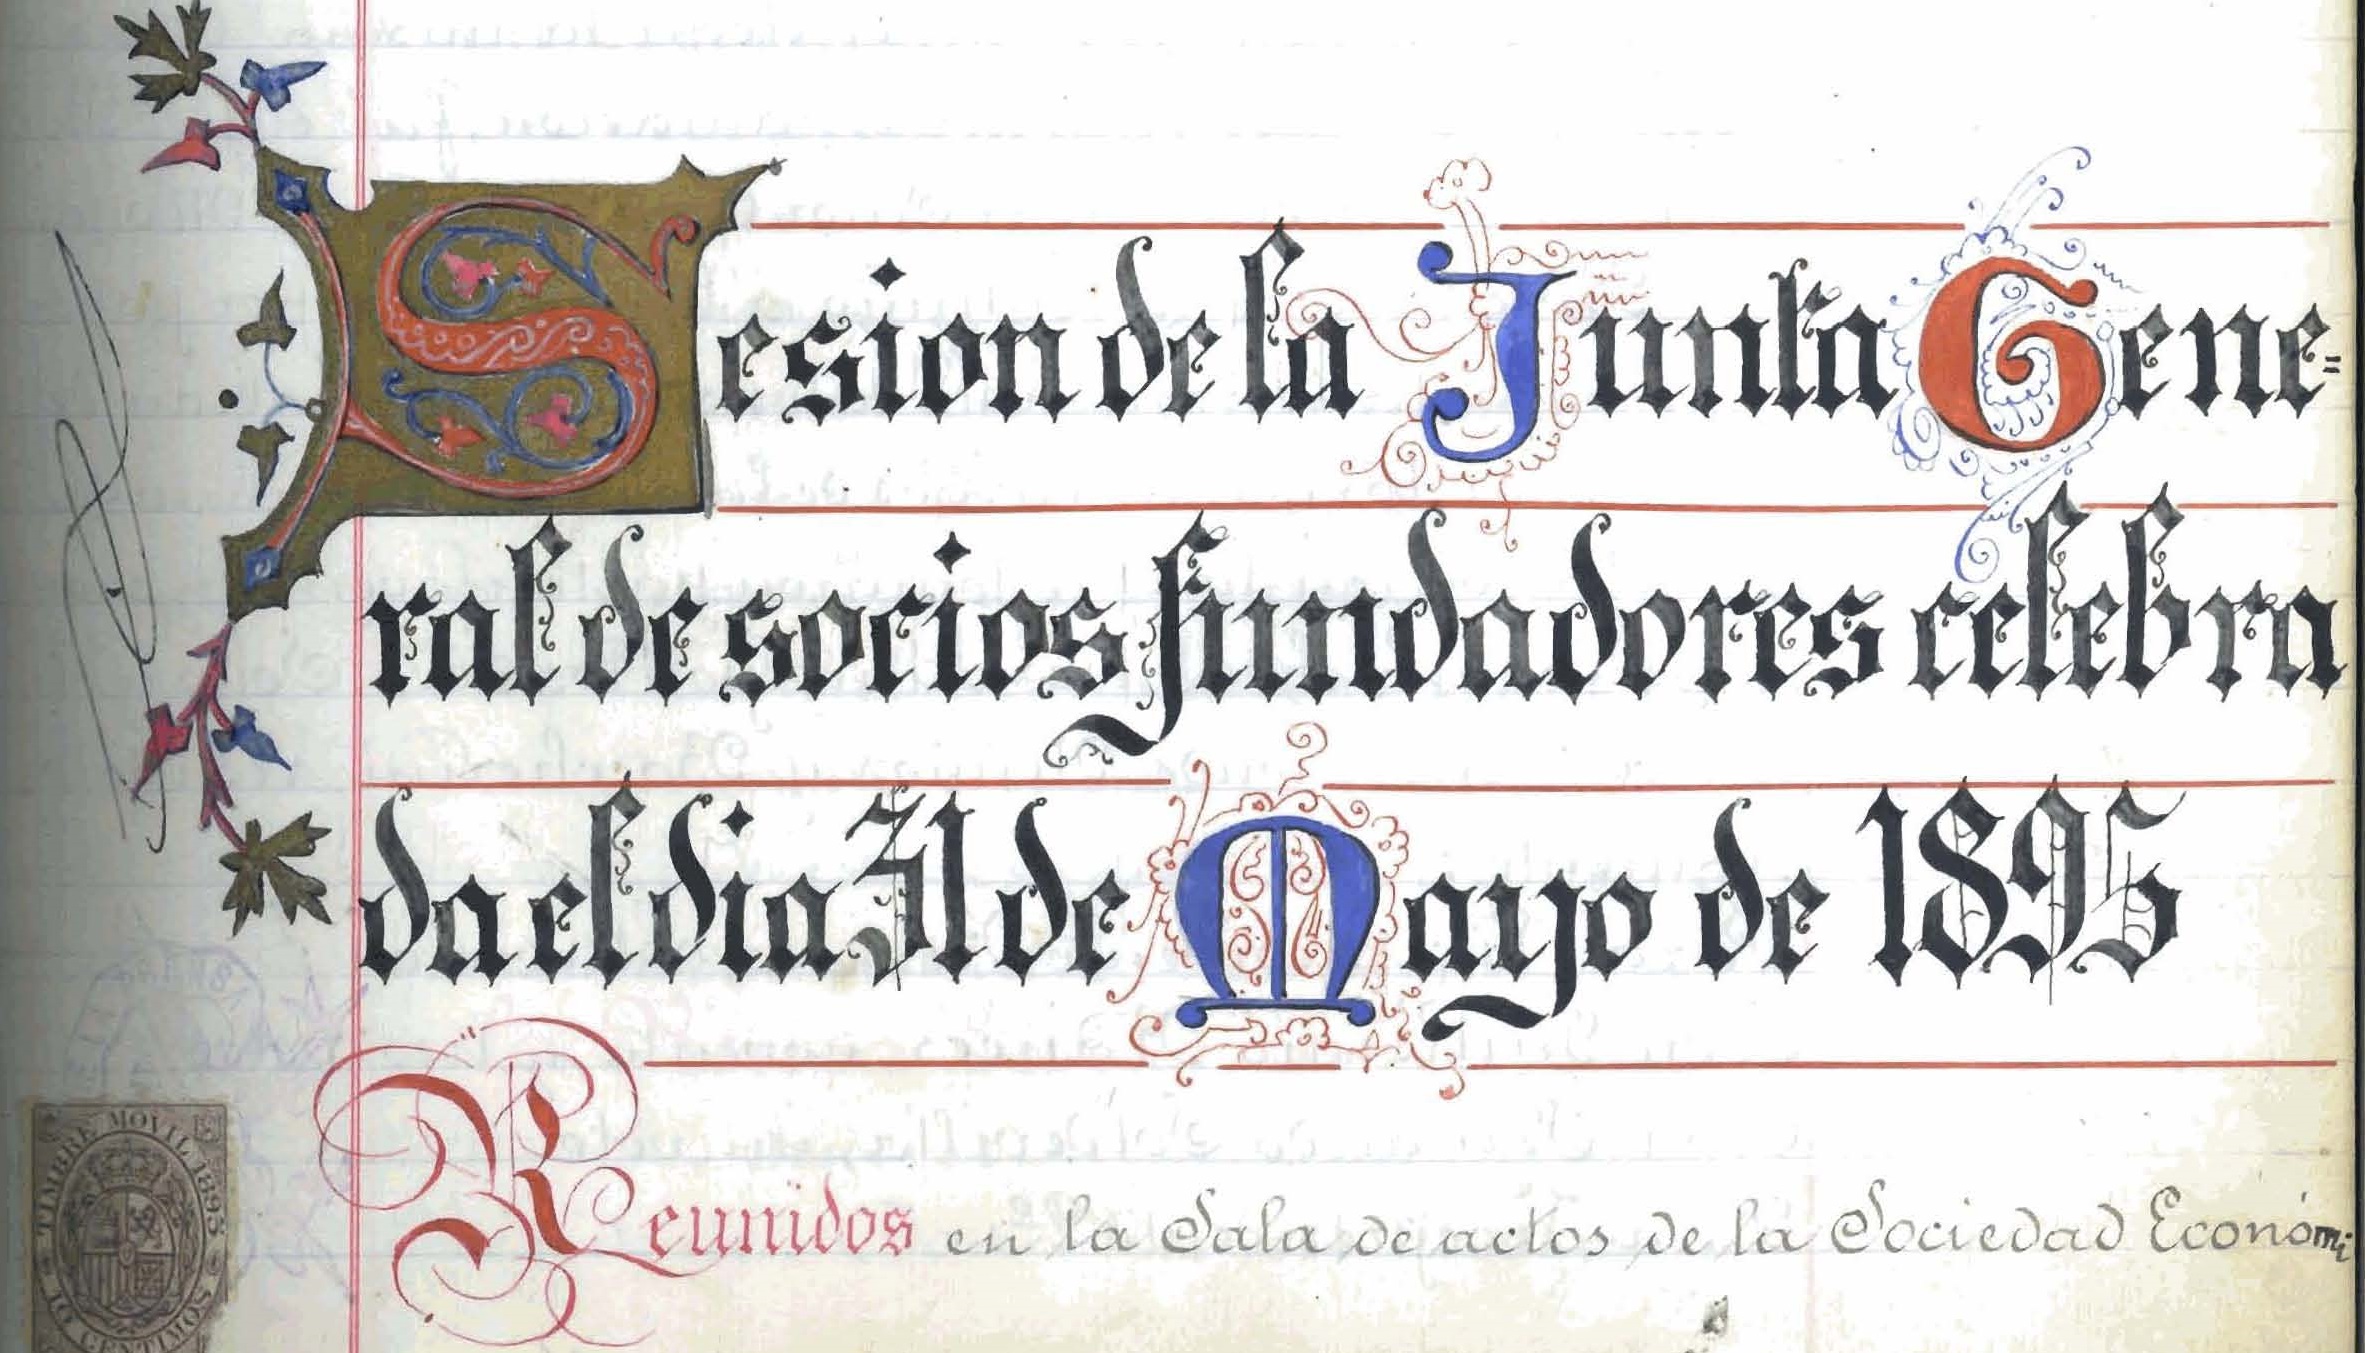 Sesion de la Junta Gene=
ral de socios fundadores celebra
da el dia 31 de Mayo de 1895
Reunidos en la Sala de actos de la Sociedad Económi
TIMBRE MOVIL 1895
10 CENTIMOS